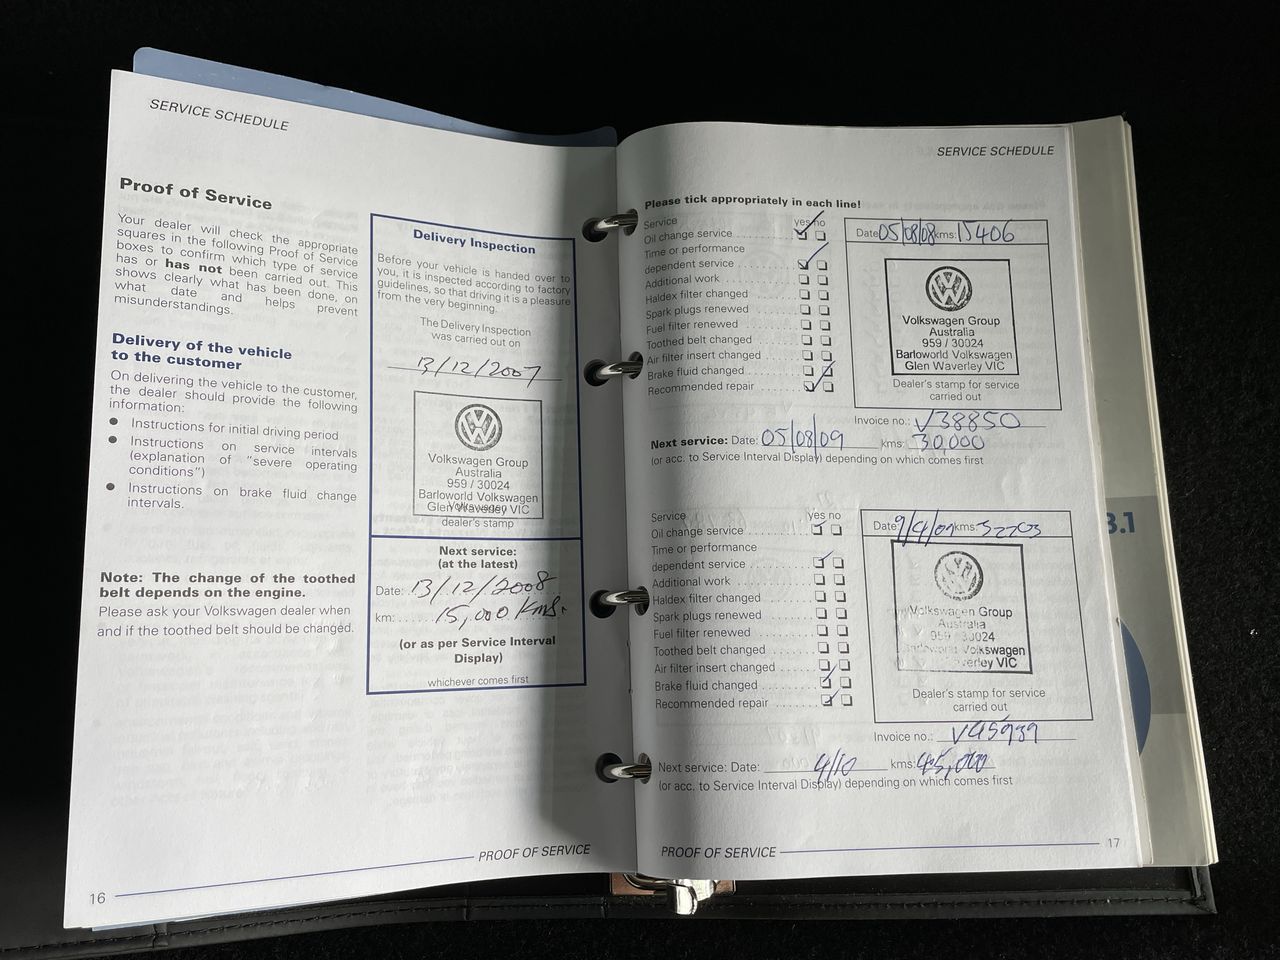 SERVICE SCHEDULE
Proof of Service
Your dealer will check the appropriate
squares in the following Proof of Service
boxes to confirm which type of service
has or has not been carried out. This
shows clearly what has been done, on
what date and helps prevent
misunderstandings.
Delivery of the vehicle
to the customer
On delivering the vehicle to the customer,
the dealer should provide the following
information:
● Instructions for initial driving period
● Instructions on service intervals
(explanation of "severe operating
conditions")
● Instructions on brake fluid change
intervals.
Note: The change of the toothed
belt depends on the engine.
Please ask your Volkswagen dealer when
and if the toothed belt should be changed.
Delivery Inspection
Before your vehicle is handed over to
you, it is inspected according to factory
guidelines, so that driving it is a pleasure
from the very beginning.
The Delivery Inspection
was carried out on
13/12/2007
Volkswagen Group
Australia
959 / 30024
Barloworld Volkswagen
Glen Waverley VIC
dealer's stamp
Next service:
(at the latest)
Date: 13/12/2008
km: 15,000 kms.
(or as per Service Interval
Display)
whichever comes first
16
PROOF OF SERVICE
SERVICE SCHEDULE
Please tick appropriately in each line!
Service yes no
Oil change service
Time or performance
dependent service
Additional work
Haldex filter changed
Spark plugs renewed
Fuel filter renewed
Toothed belt changed
Air filter insert changed
Brake fluid changed
Recommended repair
Date 05/08/08 kms: 15406
Volkswagen Group
Australia
959 / 30024
Barloworld Volkswagen
Glen Waverley VIC
Dealer's stamp for service
carried out
Invoice no.: V38850
Next service: Date: 05/08/09 kms: 30,000
(or acc. to Service Interval Display) depending on which comes first
Service yes no
Oil change service
Time or performance
dependent service
Additional work
Haldex filter changed
Spark plugs renewed
Fuel filter renewed
Toothed belt changed
Air filter insert changed
Brake fluid changed
Recommended repair
Date: 9/4/09 kms:
Volkswagen Group
Australia
959 / 30024
Volkswagen
VIC
Dealer's stamp for service
carried out
Invoice no.:
Next service: Date: 4/10 kms: 45,000
(or acc. to Service Interval Display) depending on which comes first
PROOF OF SERVICE
17
3.1